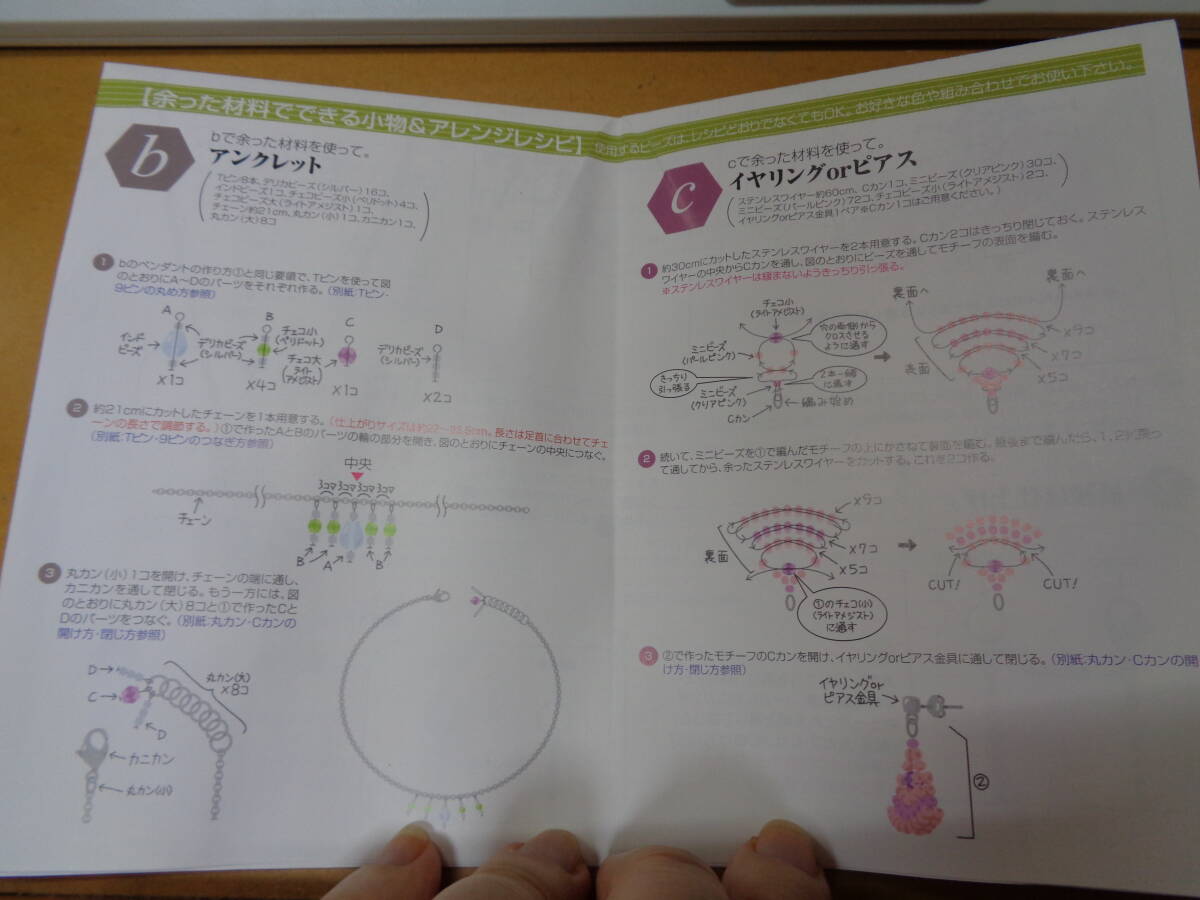 【余った材料でできる小物&アレンジレシピ】 使用するビーズは、レシピどおりでなくてもOK。お好きな色や組み合わせでお使い下さい。
b
bで余った材料を使って。
アンクレット
Tピン8本、デリカビーズ(シルバー)16コ、
インドビーズ1コ、チェコビーズ小(ペリドット)4コ、
チェコビーズ大(ライトアメジスト)1コ、
チェーン約21cm、丸カン(小)1コ、カニカン1コ、
丸カン(大)8コ
1 bのペンダントの作り方①と同じ要領で、Tピンを使って図
のとおりにA〜Dのパーツをそれぞれ作る。(別紙:Tピン・
9ピンの丸め方参照)
A
B
C
D
インド
ビーズ
デリカビーズ
(シルバー)
チェコ小
(ペリドット)
チェコ大
(ライト
アメジスト)
デリカビーズ
(シルバー)
×1コ
×4コ
×1コ
×2コ
2 約21cmにカットしたチェーンを1本用意する。(仕上がりサイズは約22〜23.5cm。長さは足首に合わせてチェ
ーンの長さで調節する。)①で作ったAとBのパーツの輪の部分を開き、図のとおりにチェーンの中央につなぐ。
(別紙:Tピン・9ピンのつなぎ方参照)
中央
3コマ 3コマ 3コマ 3コマ
チェーン
B
A
B
3 丸カン(小)1コを開け、チェーンの端に通し、
カニカンを通して閉じる。もう一方には、図
のとおりに丸カン(大)8コと①で作ったCと
Dのパーツをつなぐ。(別紙:丸カン・Cカンの
開け方・閉じ方参照)
D
C
D
丸カン(大)
×8コ
カニカン
丸カン(小)
c
cで余った材料を使って。
イヤリングorピアス
ステンレスワイヤー約60cm、Cカン1コ、ミニビーズ(クリアピンク)30コ、
ミニビーズ(パールピンク)72コ、チェコビーズ小(ライトアメジスト)2コ、
イヤリングorピアス金具1ペア※Cカン1コはご用意ください。
1 約30cmにカットしたステンレスワイヤーを2本用意する。Cカン2コはきっちり閉じておく。ステンレス
ワイヤーの中央からCカンを通し、図のとおりにビーズを通してモチーフの表面を編む。
※ステンレスワイヤーは緩まないようきっちり引っ張る。
チェコ小
(ライトアメジスト)
穴の両側から
クロスさせる
ように通す
ミニビーズ
(パールピンク)
きっちり
引っ張る
2本一緒
に通す
ミニビーズ
(クリアピンク)
Cカン
編み始め
裏面へ
裏面へ
×9コ
×7コ
×5コ
表面
2 続いて、ミニビーズを①で編んだモチーフの上にかさねて裏面を編む。最後まで編んだら、1、2列戻っ
て通してから、余ったステンレスワイヤーをカットする。これを2コ作る。
×9コ
×7コ
×5コ
裏面
①のチェコ(小)
(ライトアメジスト)
に通す
CUT!
CUT!
3 ②で作ったモチーフのCカンを開け、イヤリングorピアス金具に通して閉じる。(別紙:丸カン・Cカンの開
け方・閉じ方参照)
イヤリングor
ピアス金具
②